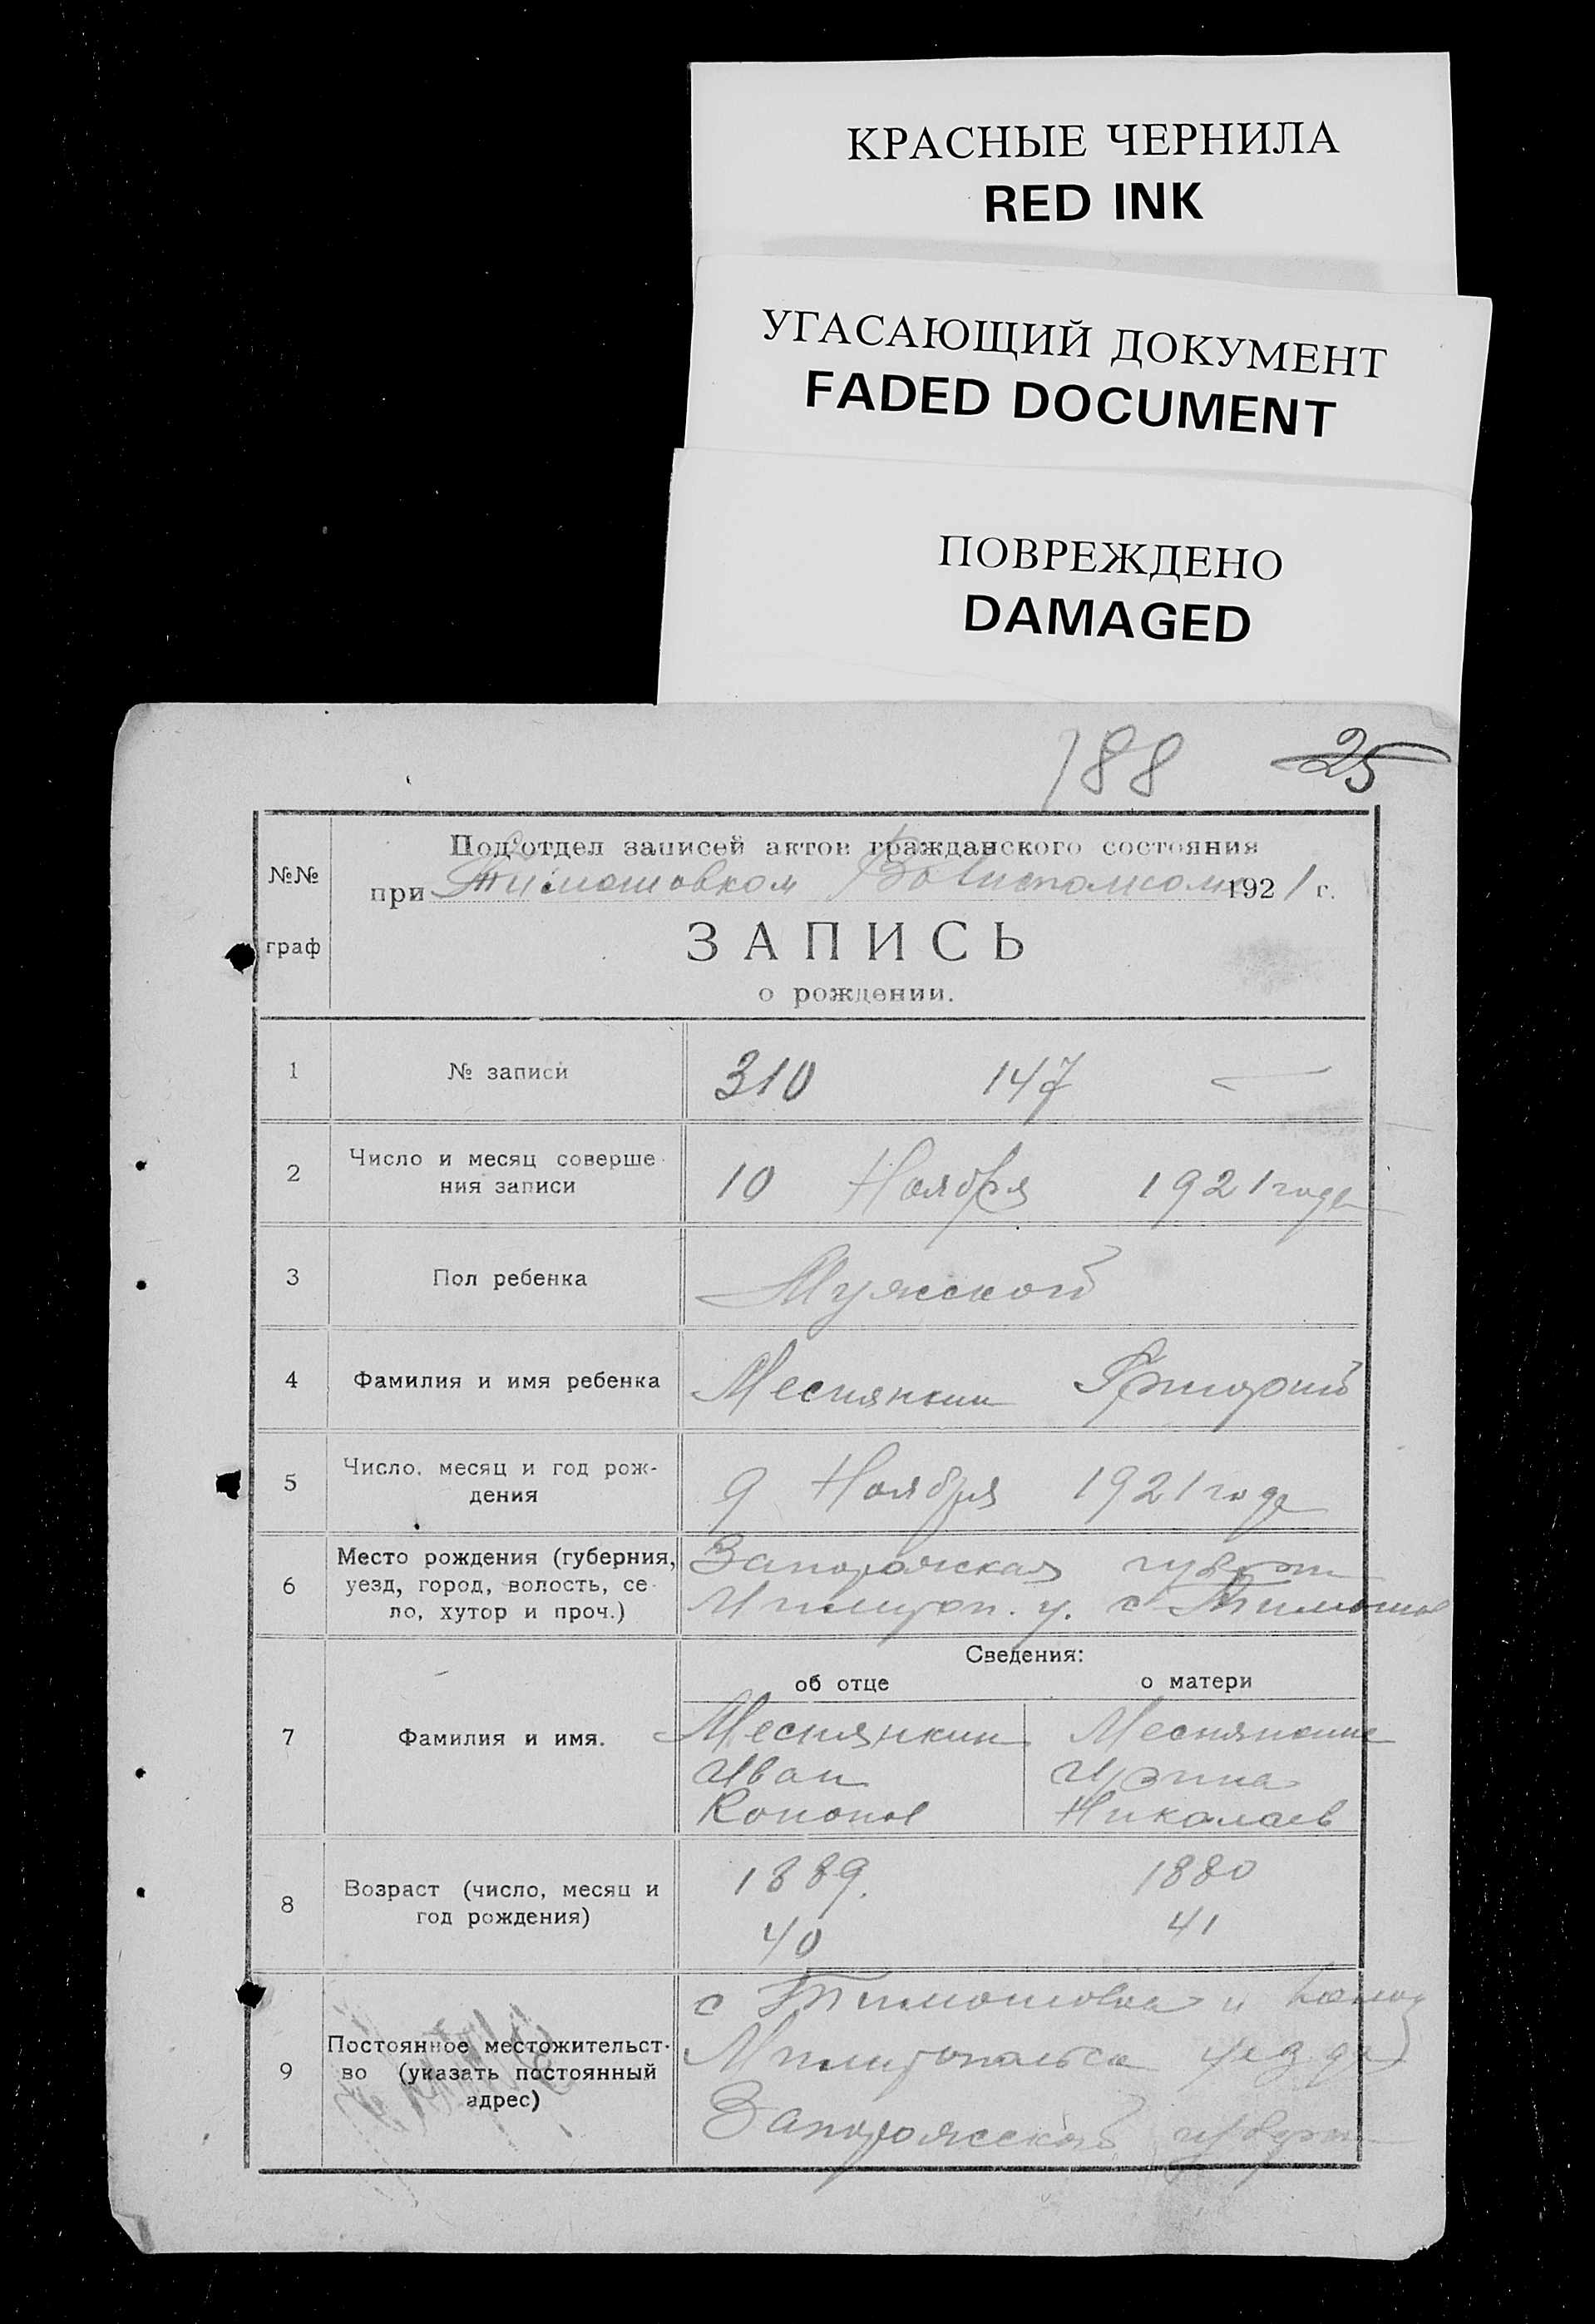 КРАСНЫЕ ЧЕРНИЛА
RED INK
УГАСАЮЩИЙ ДОКУМЕНТ
FADED DOCUMENT
ПОВРЕЖДЕНО
DAMAGED
188 25
№№ граф
Под'отдел записей актов гражданского состояния
при Тимошовком Волисполкоме 1921 г.
ЗАПИСЬ
о рождении.
1 № записи 310 147
2 Число и месяц соверше-
ния записи 10 Ноября 1921 года
3 Пол ребенка Мужской
4 Фамилия и имя ребенка Меснянкин Григорий
5 Число, месяц и год рож-
дения 9 Ноября 1921 года
6 Место рождения (губерния,
уезд, город, волость, се-
ло, хутор и проч.)
Запорожская губерн
у. с Тимошов
Сведения:
об отце о матери
7 Фамилия и имя.
Меснянкин Меснянкина
Иван Ирина
Конон Николаев
8 Возраст (число, месяц и
год рождения)
1889. 1880
40 41
9 Постоянное местожительст-
во (указать постоянный
адрес)
с Тимошовка
Мелитопольска уезда
Запорожской губерн